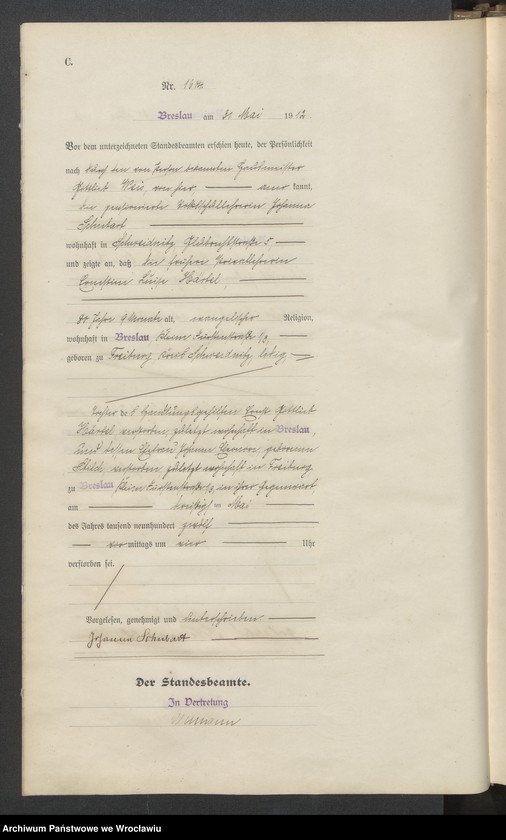 C.
Nr. 1614.
Breslau am 31. Mai 1912.
Vor dem unterzeichneten Standesbeamten erschien heute, der Persönlichkeit
nach durch den von Person bekannten Hausmeister
Gottlieb von hier, aner kannt,
die pensionierte Volksschullehrerin Johanna
Schubart
wohnhaft in Schweidnitz, 5
und zeigte an, daß die frühere Privatlehrerin
Ernestine Luise Härtel,
80 Jahre 9 Monate alt, evangelischer Religion,
wohnhaft in Breslau
geboren zu Freiburg Kreis Schweidnitz, ledig,
Tochter des Handlungsgehilfen Gottlieb
Härtel, verstorben, zuletzt wohnhaft in Breslau,
und dessen Ehefrau Johanna Eleonore, geborenen
verstorben, zuletzt wohnhaft in Freiburg,
zu Breslau in ihrer Gegenwart
am Mai
des Jahres tausend neunhundert zwölf
vor mittags um vier Uhr
verstorben sei.
Vorgelesen, genehmigt und unterschrieben
Johanna Schubart
Der Standesbeamte.
In Vertretung
Archiwum Państwowe we Wrocławiu